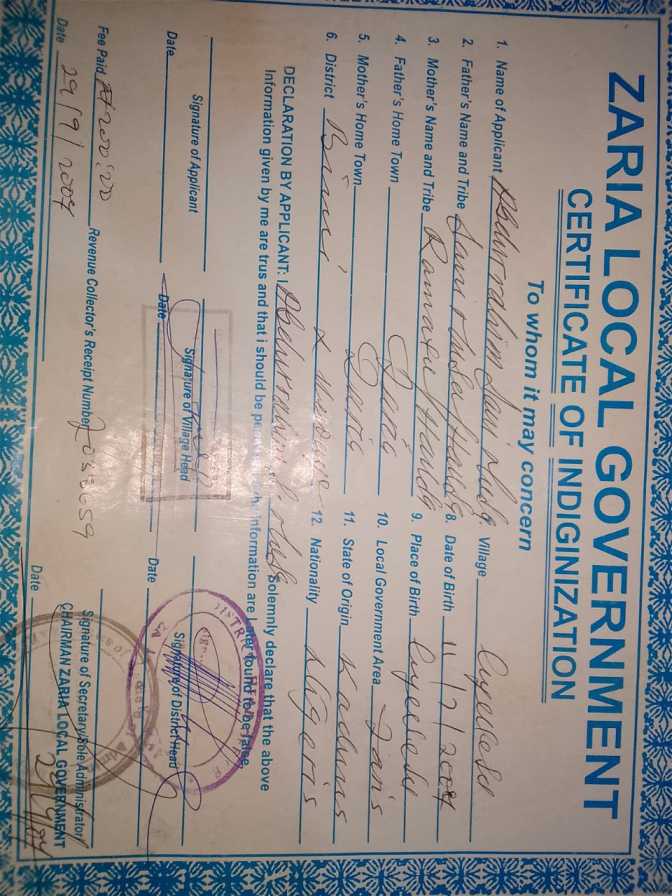 ZARIA LOCAL GOVERNMENT
CERTIFICATE OF INDIGINIZATION
To whom it may concern
1. Name of Applicant Abdurrahim Sani Village
2. Father's Name and Tribe Sani Hausa 8. Date of Birth 11/7/2004
3. Mother's Name and Tribe Ramatu Hausa 9. Place of Birth
4. Father's Home Town Zaria 10. Local Government Area Zaria
5. Mother's Home Town Zaria 11. State of Origin Kaduna
6. District Birni 12. Nationality Nigeria
DECLARATION BY APPLICANT: I Abdurrahim Solemnly declare that the above
Information given by me are trus and that i should be information are later found to be false
Signature of Applicant Signature of Village Head Signature of District Head
Date Date Date
Fee Paid ₦200:00 Revenue Collector's Receipt Number Signature of Secretary/Sole Administrator
CHAIRMAN ZARIA LOCAL GOVERNMENT
Date 29/9/2004 Date